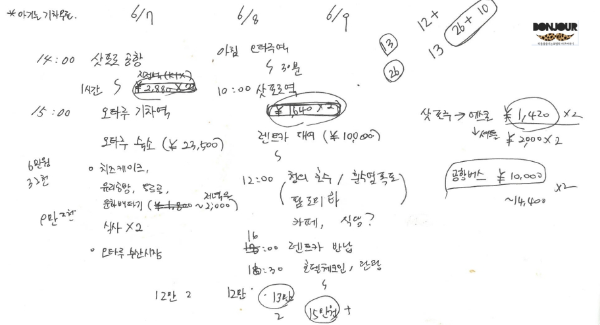 *아기는 기차무료.
6/7
14:00 삿포로 공항
1시간
15:00 오타루 기차역
오타루 숙소 (¥23,500)
치즈케이크,
유리공방, 오르골,
~2,000)
식사 x2
오타루 수산시장
12만 2
6/8
아침 오타루역
30분
10:00 삿포로역
¥1,640 x2
렌트카 대여 (¥10,000)
12:00 청의 호수 / 흰수염폭포
팜 도미타
카페, 식영?
16
:00 렌트카 반납
:30 호텔체크인, 관광
12만
13만
2
15만원 +
6/9
13
26
12+
13 26+10
BONJOUR
삿포로 → ¥1,420 x2
세트 ¥2,000 x2
공항버스 ¥10,000
~14,400 x2